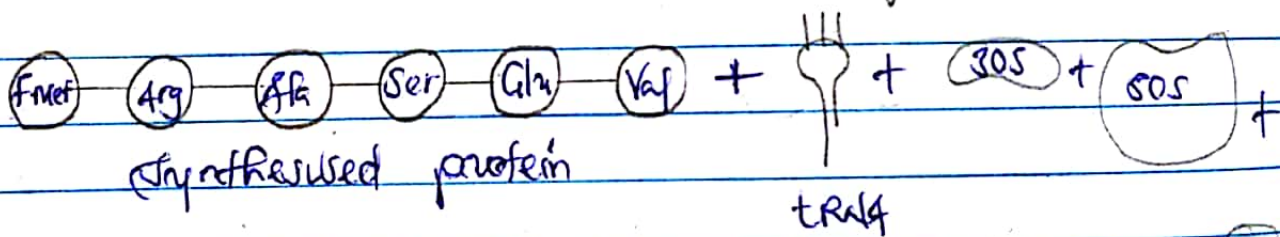 Fmet Arg Ala Ser Glu Val + + 30S + 50S +
Synthesised protein
tRNA